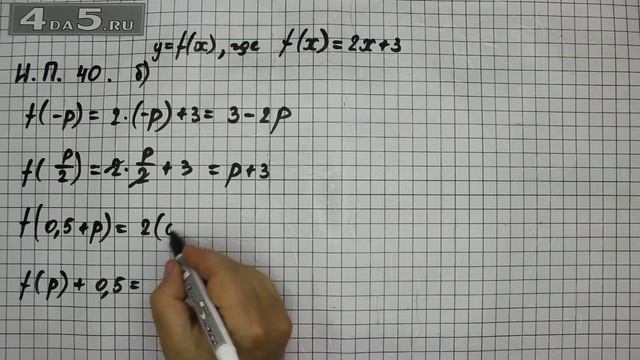 4DA5.RU
y=f(x), где f(x)=2x+3
Н.П. 40. б)
f(-p)= 2·(-p)+3= 3-2p
f(p/2)=2·p/2+3 = p+3
f(0,5+p)= 2(
f(p)+0,5=